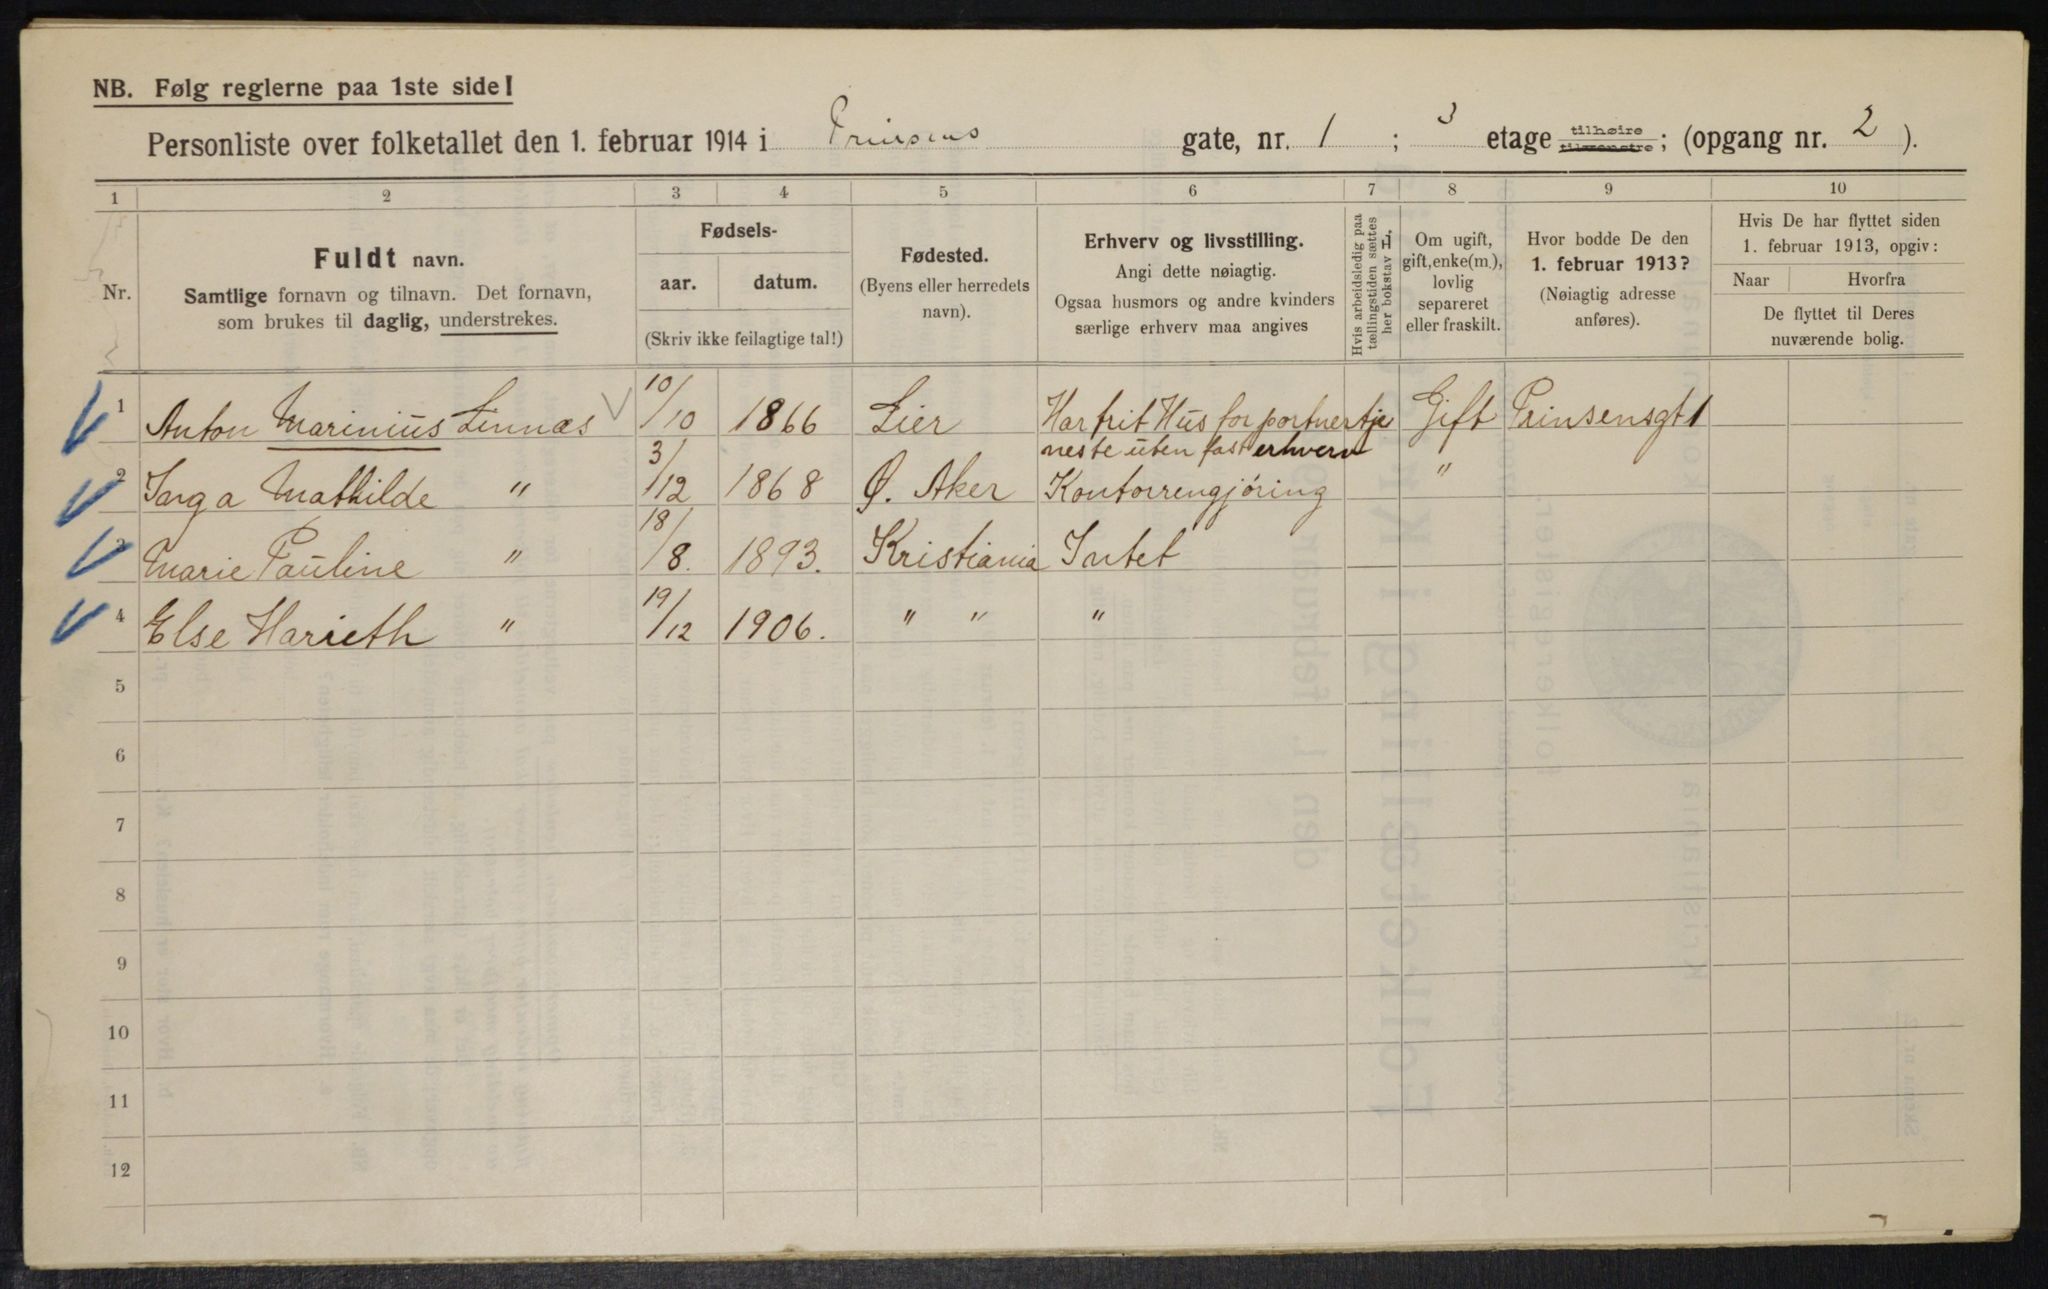 NB. Følg reglerne paa 1ste side!
Personliste over folketallet den 1. februar 1914 i Prinsens gate, nr. 1 ; 3 etage tilhøire tilvenstre ; (opgang nr. 2 ).
1 2 3 4 5 6 7 8 9 10
Nr.
Fuldt navn.
Samtlige fornavn og tilnavn. Det fornavn,
som brukes til daglig, understrekes.
Fødsels-
aar. datum.
(Skriv ikke feilagtige tal!)
Fødested.
(Byens eller herredets
navn).
Erhverv og livsstilling.
Angi dette nøiagtig.
Ogsaa husmors og andre kvinders
særlige erhverv maa angives
Hvis arbeidsledig paa
tællingstiden sættes
her bokstav L.
Om ugift,
gift, enke(m.),
lovlig
separeret
eller fraskilt.
Hvor bodde De den
1. februar 1913?
(Nøiagtig adresse
anføres).
Hvis De har flyttet siden
1. februar 1913, opgiv:
Naar Hvorfra
De flyttet til Deres
nuværende bolig.
1 Anton Marinius Linnæs 10/10 1866 Lier Har frit Hus for portnertje Gift Prinsensgt 1
neste uten fast erhverv
2 Inga Mathilde " 3/12 1868 Ø. Aker Kontorrengjöring "
3 Marie Pauline " 18/8. 1893. Kristiania Intet
4 Else Harieth " 19/12 1906. " " "
5
6
7
8
9
10
11
12